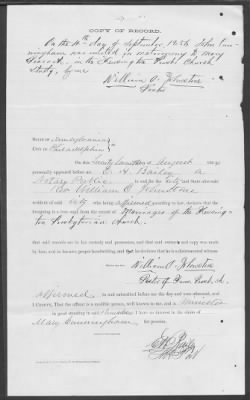 COPY OF RECORD.
On the 11th day of September 1856 John Cun-
ningham was united in matrimony to Mary
in the Kensington Presb Church
by me
William O. Johnstone
Pastor
STATE OF Pennsylvania
CITY OF Philadelphia
On this day of
personally appeared before E. H. Bailey a
Notary Public in and for the City and State aforesaid
Rev William O. Johnstone
resident of said City who being affirmed according to law, declares that the
foregoing is a true copy from the record of Marriages of the Kensing-
ton Presbyterian Church.
that said records are in his custody and possession, and that said record and copy was made
by him, and are in proper handwriting, and that he declares that he is a disinterested witness
William O. Johnstone
Pastor of Kens Presb. ch.
Affirmed to and subscribed before me the day and year aforesaid, and
I CERTIFY, That the affiant is a credible person, well known to me, and a
in good standing in said I have no interest in the claim of
Mary Cunningham for pension.